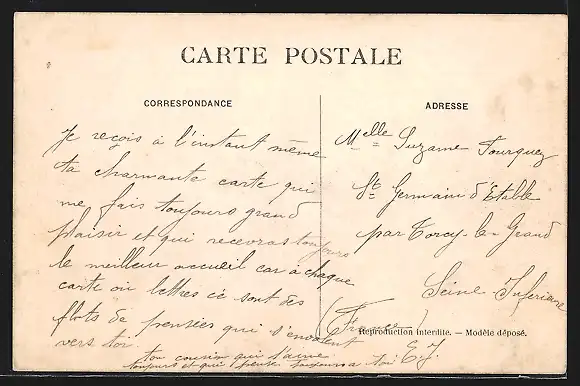 CARTE POSTALE
CORRESPONDANCE
ADRESSE
Je reçois à l'instant même
ta charmante carte qui
me fais toujours grand
plaisir et qui recevras toujours
le meilleur accueil car à chaque
carte ou lettres ce sont des
flots de pensées qui s'envolent
vers toi.
ton cousin qui t'aime
toujours et qui pense toujours a toi E J.
Melle Suzanne Tourquez
St Germain d'Etable
par Torcy-le-Grand
Seine-Inférieure
(France)
Reproduction interdite. — Modèle déposé.